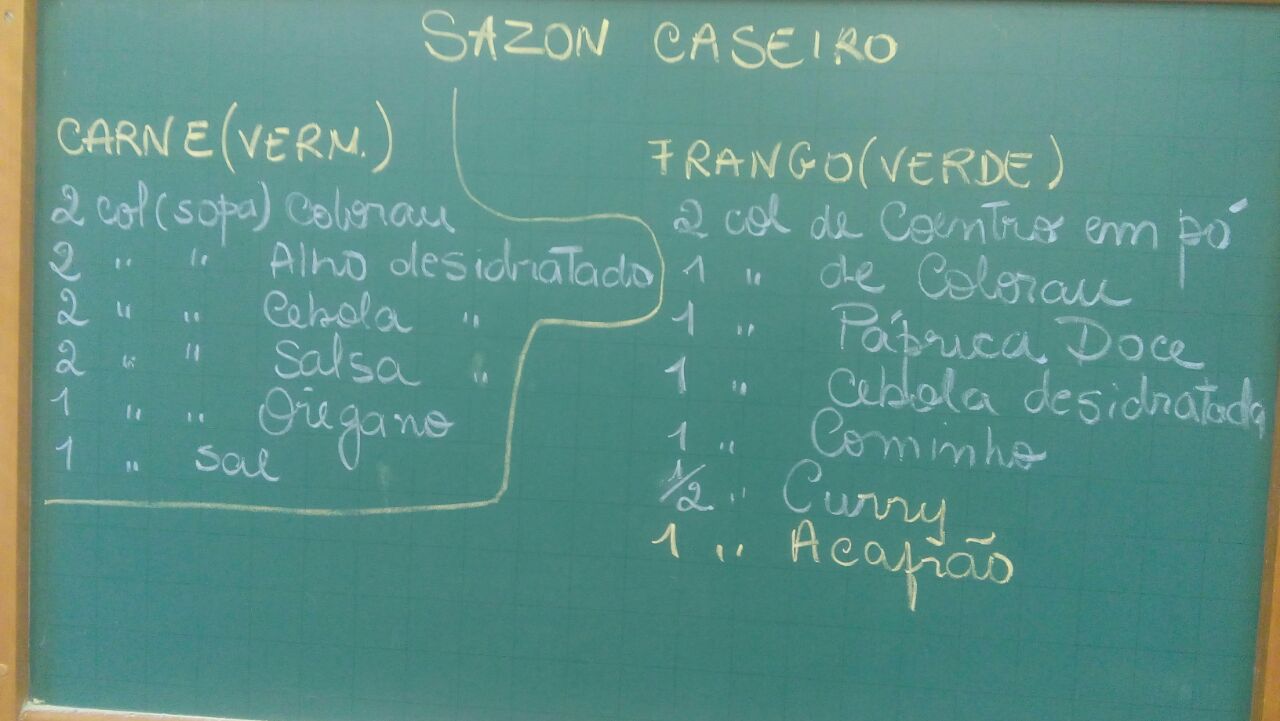 SAZON CASEIRO
CARNE (VERM.)
2 col (sopa) Colorau
2 " " Alho desidratado
2 " " Cebola "
2 " " Salsa "
1 " " Orégano
1 " sal
FRANGO (VERDE)
2 col de Coentro em pó
1 " de Colorau
1 " Páprica Doce
1 " Cebola desidratada
1 " Cominho
1/2 " Curry
1 " Acafrão